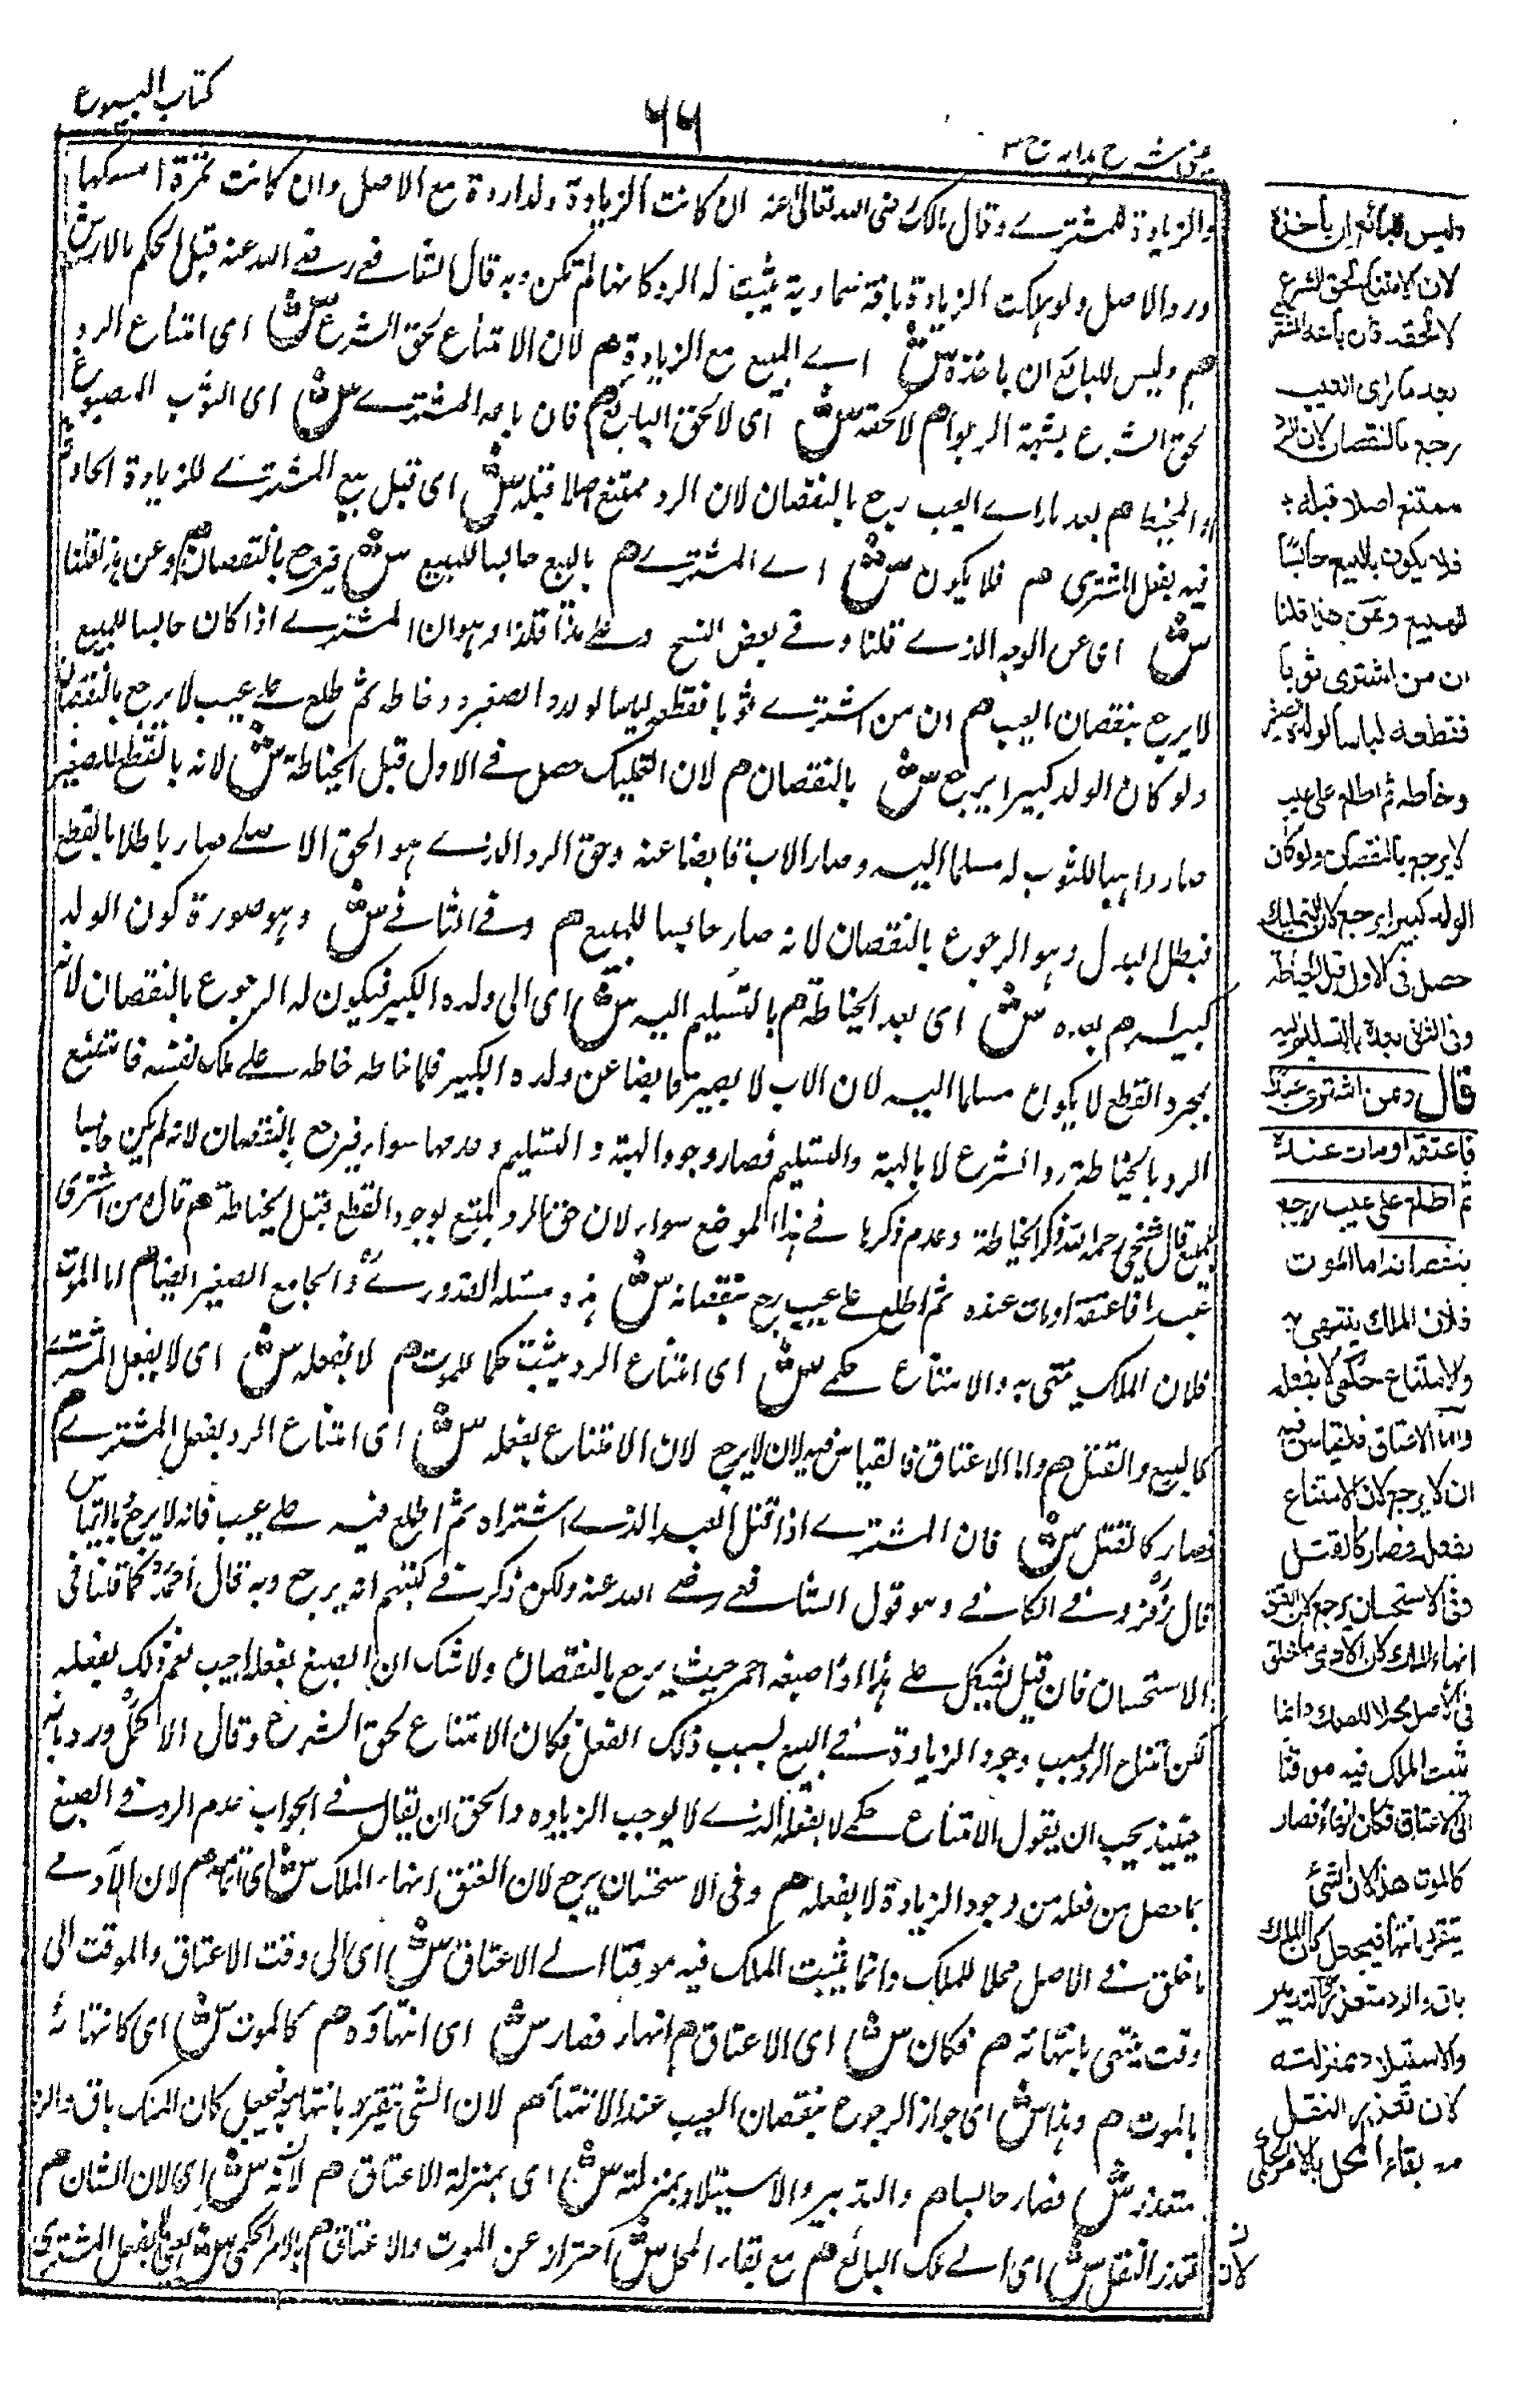 كتاب البيوع
٦٦
عينى شرح هدايه ج ٣
والزيادة للمشترے وقال مالك رضى الله تعالىٰ عنه ان كانت الزيادة ولدا ردة مع الاصل وان كانت ثمرة امسكها
ورد الاصل ولو هلكت الزيادة بآفة سماوية يثبت له الرد كانها لم تكن وبه قال الشافعے رضے الله عنه قبل الحكم بالارش
هم وليس للبائع ان ياخذه ش اے المبيع مع الزيادة هم لان الامتناع لحق الشرع ش اى امتناع الرد
لحق الشرع بشبهة الربوا هم لا لحقه ش اى لا لحق البائع هم فان باعه المشترے ش اى الثوب المصبوغ
او المخيط هم بعد ما راے العيب رجع بالنقصان لان الرد ممتنع اصلا قبله ش اى قبل بيع المشترے للزيادة الحادثة
فيه بفعل المشترى هم فلا يكون ش اے المشترے هم بالبيع حابسا للمبيع ش فيرجع بالنقصان هم وعن هذا قلنا
ش اى عن الوجه الذے قلنا وفے بعض النسخ وعلے هذا قلنا وهو ان المشترے اذا كان حابسا للمبيع
لا يرجع بنقصان العيب هم ان من اشترے ثوبا فقطعه لباسا لولده الصغير وخاطه ثم طلع علے عيب لا يرجع بالنقصان
ولو كان الولد كبيرا يرجع ش بالنقصان هم لان التمليك حصل فے الاول قبل الخياطة ش لانه بالقطع للصغير
صار واهبا للثوب له مسلما اليه وصار الاب قابضا عنه وحق الرد الذے هو الحق الاصلے صار باطلا بالقطع
فبطل البدل وهو الرجوع بالنقصان لانه صار حابسا للمبيع هم وفے الثانے ش وهو صورة كون الولد
كبيرا هم بعده ش اى بعد الخياطة هم بالتسليم اليه ش اى الى ولده الكبير فيكون له الرجوع بالنقصان لانه
بمجرد القطع لا يكون مسلما اليه لان الاب لا يصير قابضا عن ولده الكبير فلما خاطه خاطه علے ملك نفسه فامتنع
الرد بالخياطة رد الشرع لا بالهبة والتسليم فصار وجود الهبة والتسليم وعدمها سواء فيرجع بالنقصان لانه لم يكن حابسا
للمبيع قال شيخى رحمه الله ذكر الخياطة وعدم ذكرها فے هذا الموضع سواء لان حق الرد امتنع لوجود القطع قبل الخياطة هم قال ومن اشترى
عبدا فاعتقه او مات عنده ثم اطلع علے عيب رجع بنقصانه ش هذه مسئلة القدورے والجامع الصغير ايضا هم اما الموت
فلان الملك ينتهى به والامتناع حكمے ش اى امتناع الرد يثبت حكما للموت هم لا بفعله ش اى لا بفعل المشترے
كالبيع والقتل هم واما الاعتاق فالقياس فيه ان لا يرجع لان الامتناع بفعله ش اى امتناع الرد بفعل المشترے هم
فصار كالقتل ش فان المشترے اذا قتل العبد الذے اشتراه ثم اطلع فيه علے عيب فانه لا يرجع بالقياس
قال زفر وفے الكافے وهو قول الشافعے رضے الله عنه ولكن ذكر فے كتبهم انه يرجع وبه قال احمد كما قلنا فى
الاستحسان فان قيل يشكل علے هذا اذا صبغه احمر حيث يرجع بالنقصان ولا شك ان الصبغ بفعله اجيب نعم ذلك بفعله
لكن امتناع الرد بسبب وجود الزيادة فے المبيع بسبب ذلك الفعل فكان الامتناع لحق الشرع وقال الاكمل ورد بانه
حينئذ يجب ان يقول الامتناع حكمے لا بفعله الذے لا يوجب الزيادة والحق ان يقال فے الجواب عدم الرد فے الصبغ
بما حصل من فعله من وجود الزيادة لا بفعله هم وفى الاستحسان يرجع لان العتق انهاء الملك ش اى اتمامه هم لان الآدمے
ما خلق فے الاصل محلا للملك وانما يثبت الملك فيه موقتا الے الاعتاق ش اى الى وقت الاعتاق والموقت الى
وقت ينتهى بانتهائه هم فكان ش اى الاعتاق هم انهاء فصار ش اى انتهاؤه هم كالموت ش اى كانتهائه
بالموت هم وهذا ش اى جواز الرجوع بنقصان العيب عند الانتهاء هم لان الشئ يتقرر بانتهائه فيجعل كان الملك باق والرد
متعذر ش فصار حابسا هم والتدبير والاستيلاد بمنزلته ش اى بمنزلة الاعتاق هم لانه ش اى لان الشان هم
تعذر النقل ش اى الے ملك البائع هم مع بقاء المحل ش احتراز عن الموت والاعتاق هم بالامر الحكمى ش يعنى لا بفعل المشترى
لان
وليس للبائع ان يأخذه
لان الامتناع لحق الشرع
لا لحقه فان باعه المشترى
بعد ما رأى العيب
رجع بالنقصان لان الرد
ممتنع اصلا قبله
فلا يكون بالبيع حابسًا
للمبيع وعن هذا قلنا
ان من اشترى ثوبا
فقطعه لباسا لولده الصغير
وخاطه ثم اطلع على عيب
لا يرجع بالنقصان ولو كان
الولد كبيرا يرجع لان التمليك
حصل فى الاول قبل الخياطة
وفى الثانى بعده بالتسليم اليه
قال ومن اشترى عبدا
فاعتقه او مات عنده
ثم اطلع على عيب رجع
بنقصانه اما الموت
فلان الملك ينتهى به
والامتناع حكمى لا بفعله
واما الاعتاق فالقياس فيه
ان لا يرجع لان الامتناع
بفعله فصار كالقتل
وفى الاستحسان يرجع لان العتق
انهاء الملك لان الآدمى ما خلق
فى الاصل محلا للملك وانما
يثبت الملك فيه موقتا
الى الاعتاق فكان انهاء فصار
كالموت هذا لان الشئ
يتقرر بانتهائه فيجعل كان الملك
باق والرد متعذر والتدبير
والاستيلاد بمنزلته
لان تعذر النقل
مع بقاء المحل بالامر الحكمى